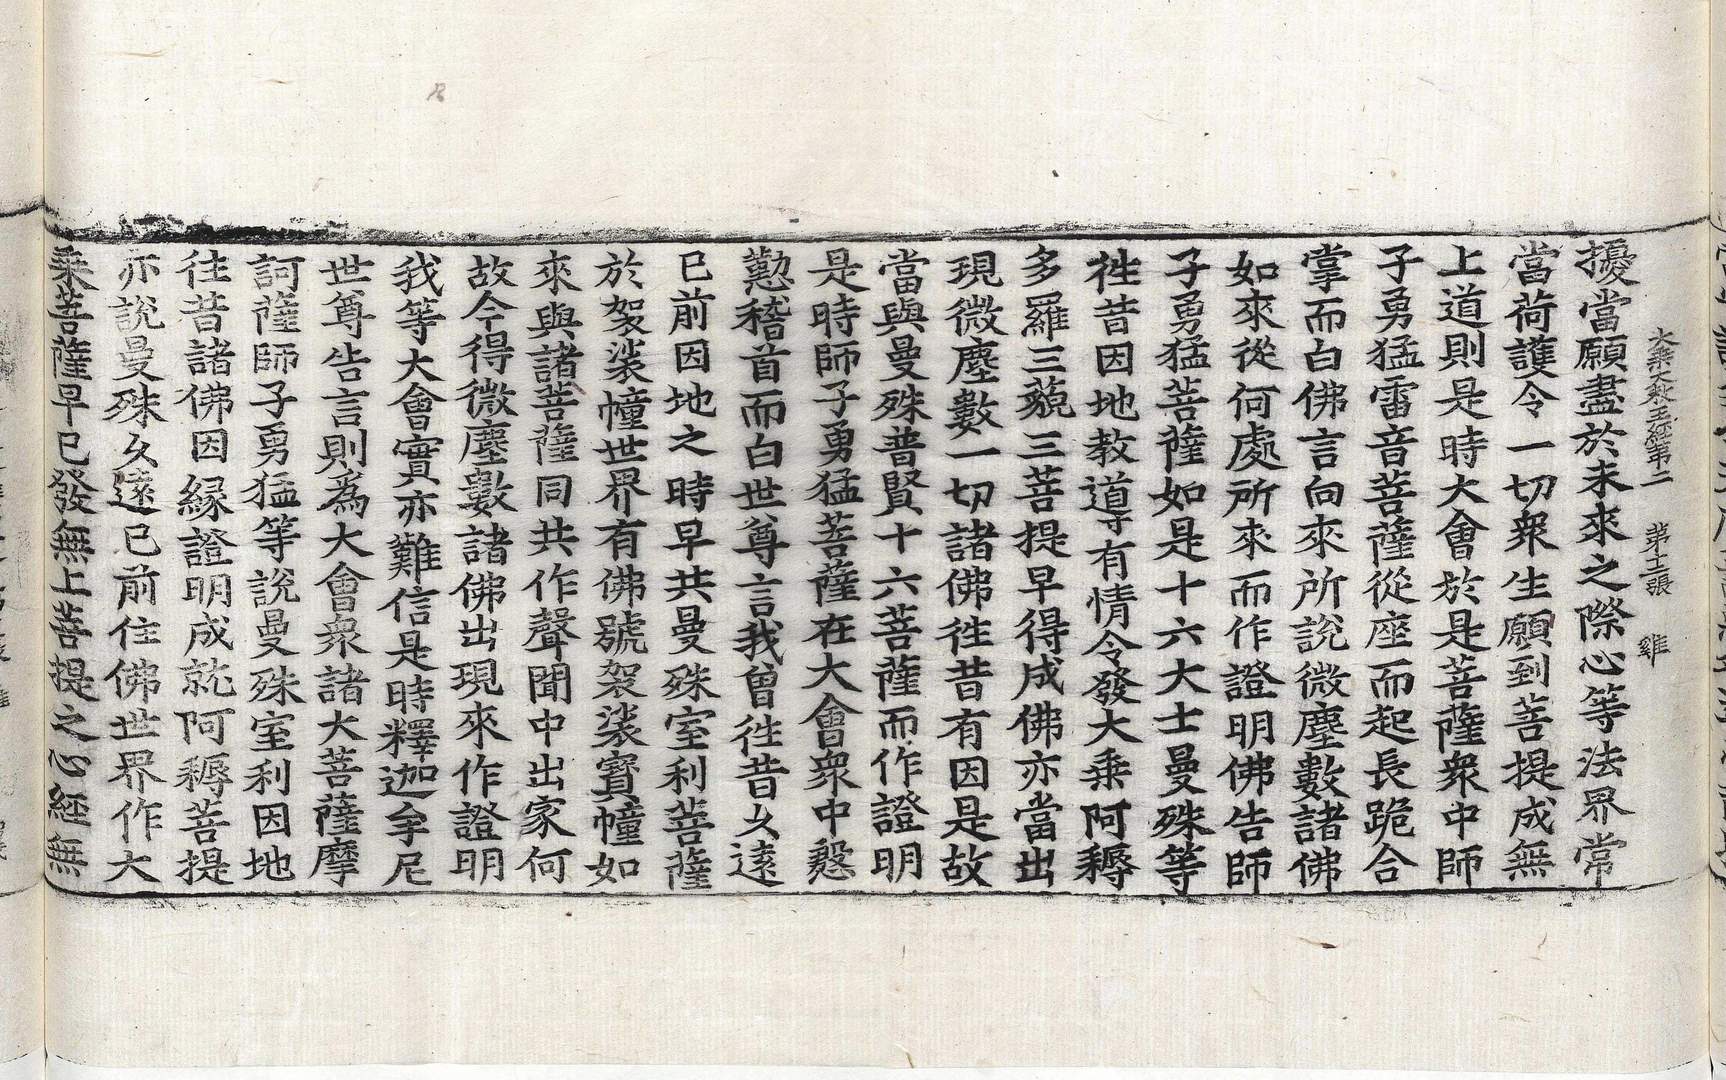 大乘大教王經第二 第十二張 雞
擾當願盡於未來之際心等法界常
當荷護令一切衆生願到菩提成無
上道則是時大會於是菩薩衆中師
子勇猛雷音菩薩從座而起長跪合
掌而白佛言向來所說微塵數諸佛
如來從何處所來而作證明佛告師
子勇猛菩薩如是十六大士曼殊等
徃昔因地教導有情令發大乘阿耨
多羅三藐三菩提早得成佛亦當出
現微塵數一切諸佛徃昔有因是故
當與曼殊普賢十六菩薩而作證明
是時師子勇猛菩薩在大會衆中慇
懃稽首而白世尊言我曾徃昔久遠
已前因地之時早共曼殊室利菩薩
於袈裟幢世界有佛號袈裟寶幢如
來與諸菩薩同共作聲聞中出家何
故今得微塵數諸佛出現來作證明
我等大會實亦難信是時釋迦牟尼
世尊告言則爲大會衆諸大菩薩摩
訶薩師子勇猛等說曼殊室利因地
往昔諸佛因緣證明成就阿耨菩提
亦說曼殊久遠已前住佛世界作大
乘菩薩早已發無上菩提之心經無